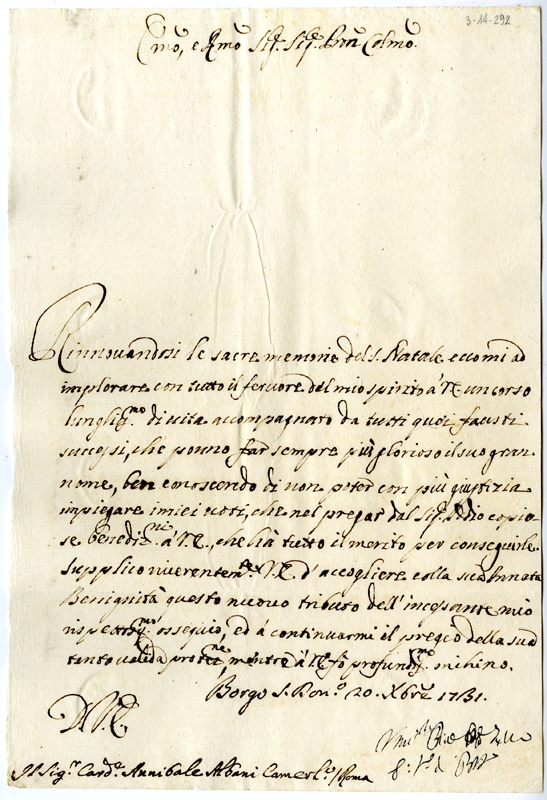 3-14-292
Emo, e Rmo Sig.r Sig.r Pron Colmo.
Rinnovandosi le sacre memorie del S. Natale eccomi ad
implorare con tutto il fervore del mio spirito à V.E. un corso
lunghis.mo di vita accompagnato da tutti quei fausti
successi, che ponno far sempre più glorioso il suo gran
nome, ben conoscendo di non poter con più giustizia
impiegare i miei voti, che nel pregar dal Sig.r Iddio copio-
se benediz.ni à V.E., che hà tutto il merito per conseguirle.
Supplico riverentem.te V.E. d'accogliere colla sua Innata
Benignità questo nuovo tributo dell'incessante mio
rispettos.mo ossequio, ed à continuarmi il pregio della sua
tanto valida protez.ne, mentre à V.E. fò profundis.mo inchino.
Borgo S. Don.o 20. Xbre 1731.
D. V.E.
Il Sig.r Card.e Annibale Albani Camerl.o / Roma